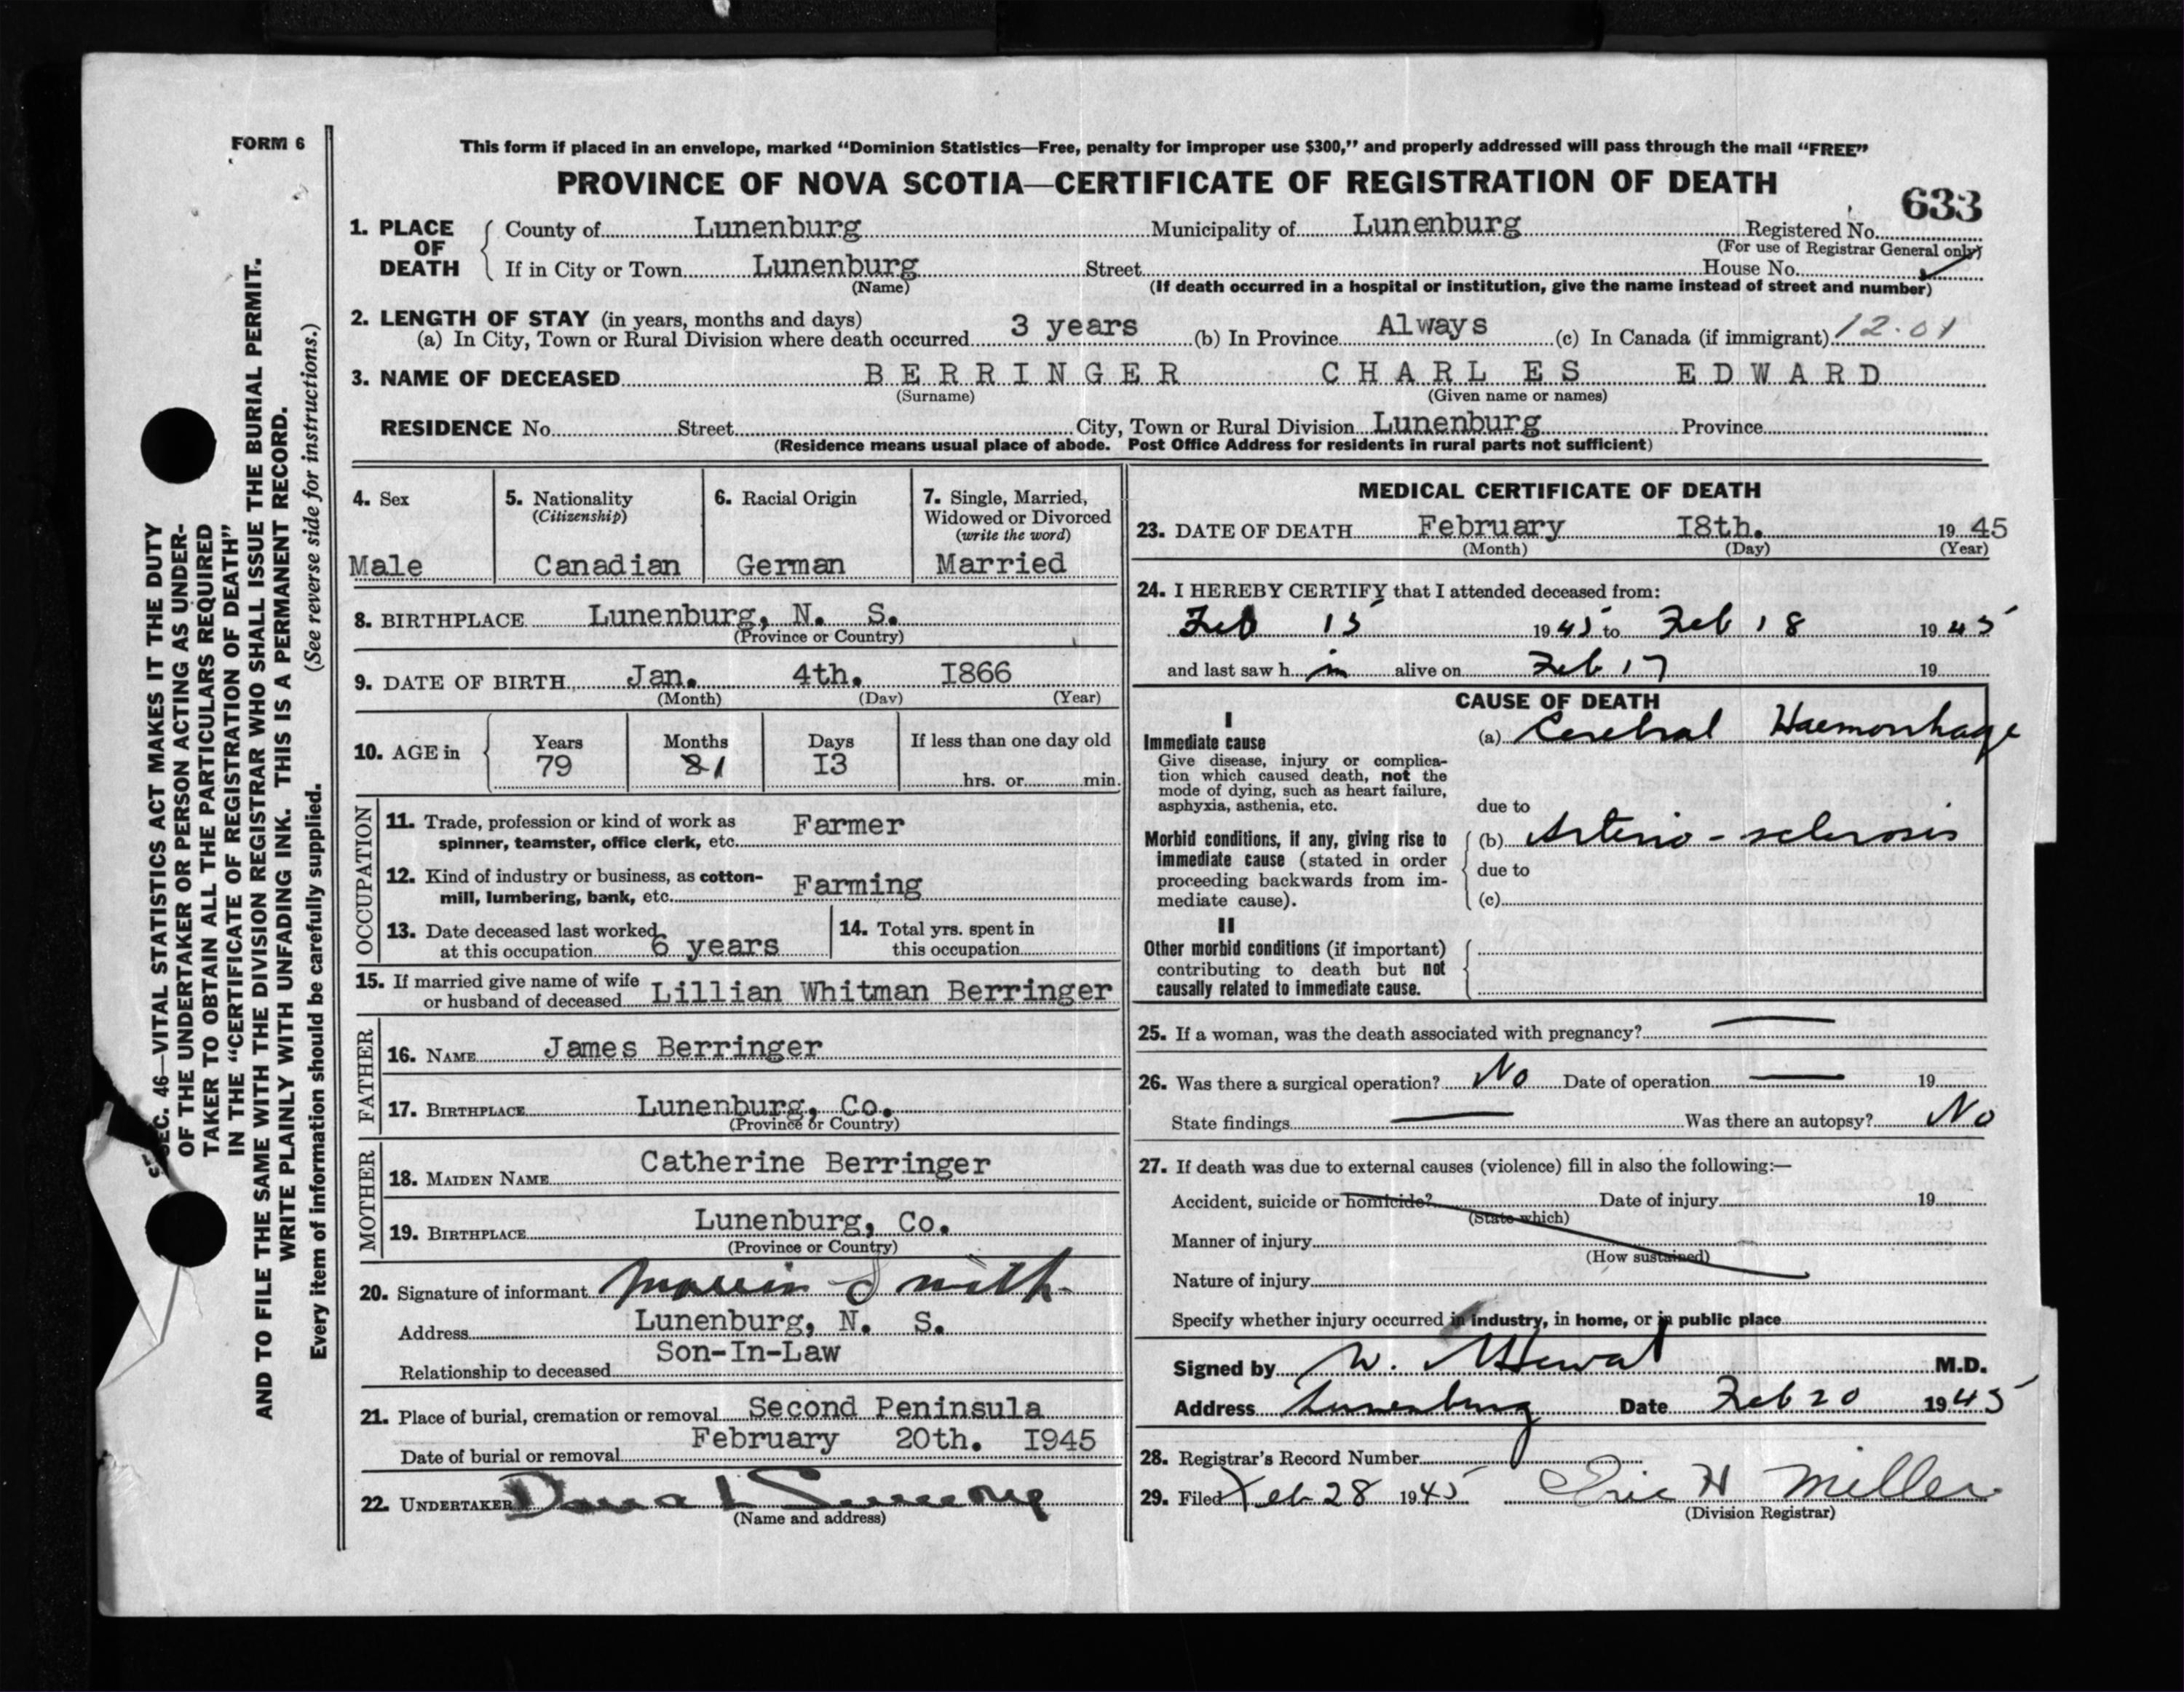 FORM 6
This form if placed in an envelope, marked “Dominion Statistics—Free, penalty for improper use $300,” and properly addressed will pass through the mail “FREE”
PROVINCE OF NOVA SCOTIA—CERTIFICATE OF REGISTRATION OF DEATH
633
1. PLACE OF DEATH County of Lunenburg Municipality of Lunenburg Registered No.
(For use of Registrar General only)
If in City or Town Lunenburg Street House No.
(Name) (If death occurred in a hospital or institution, give the name instead of street and number)
2. LENGTH OF STAY (in years, months and days)
(a) In City, Town or Rural Division where death occurred 3 years (b) In Province Always (c) In Canada (if immigrant) 12.01
3. NAME OF DECEASED BERRINGER CHARLES EDWARD
(Surname) (Given name or names)
RESIDENCE No. Street City, Town or Rural Division Lunenburg Province
(Residence means usual place of abode. Post Office Address for residents in rural parts not sufficient)
4. Sex
Male
5. Nationality
(Citizenship)
Canadian
6. Racial Origin
German
7. Single, Married,
Widowed or Divorced
(write the word)
Married
8. BIRTHPLACE Lunenburg, N. S.
(Province or Country)
9. DATE OF BIRTH Jan. 4th. I866
(Month) (Day) (Year)
10. AGE in Years Months Days If less than one day old
79 1 I3 hrs. or min.
OCCUPATION
11. Trade, profession or kind of work as
spinner, teamster, office clerk, etc. Farmer
12. Kind of industry or business, as cotton-
mill, lumbering, bank, etc. Farming
13. Date deceased last worked
at this occupation 6 years
14. Total yrs. spent in
this occupation
15. If married give name of wife
or husband of deceased Lillian Whitman Berringer
FATHER
16. NAME James Berringer
17. BIRTHPLACE Lunenburg, Co.
(Province or Country)
MOTHER
18. MAIDEN NAME Catherine Berringer
19. BIRTHPLACE Lunenburg, Co.
(Province or Country)
20. Signature of informant Smith
Address Lunenburg, N. S.
Relationship to deceased Son-In-Law
21. Place of burial, cremation or removal Second Peninsula
Date of burial or removal February 20th. I945
22. UNDERTAKER
(Name and address)
MEDICAL CERTIFICATE OF DEATH
23. DATE OF DEATH February I8th. 19 45
(Month) (Day) (Year)
24. I HEREBY CERTIFY that I attended deceased from:
Feb 15 19 45 to Feb 18 19 45
and last saw h im alive on Feb 17 19
CAUSE OF DEATH
I
Immediate cause
Give disease, injury or complica-
tion which caused death, not the
mode of dying, such as heart failure,
asphyxia, asthenia, etc.
(a) Cerebral Haemorrhage
due to
Morbid conditions, if any, giving rise to
immediate cause (stated in order
proceeding backwards from im-
mediate cause).
(b) Arterio-sclerosis
due to
(c)
II
Other morbid conditions (if important)
contributing to death but not
causally related to immediate cause.
25. If a woman, was the death associated with pregnancy?
26. Was there a surgical operation? No Date of operation 19
State findings Was there an autopsy? No
27. If death was due to external causes (violence) fill in also the following:—
Accident, suicide or homicide? Date of injury 19
(State which)
Manner of injury
(How sustained)
Nature of injury
Specify whether injury occurred in industry, in home, or in public place
Signed by W. M.D.
Address Lunenburg Date Feb 20 1945
28. Registrar's Record Number
29. Filed Feb 28 1945 Eric H Miller
(Division Registrar)
SEC. 46—VITAL STATISTICS ACT MAKES IT THE DUTY
OF THE UNDERTAKER OR PERSON ACTING AS UNDER-
TAKER TO OBTAIN ALL THE PARTICULARS REQUIRED
IN THE “CERTIFICATE OF REGISTRATION OF DEATH”
AND TO FILE THE SAME WITH THE DIVISION REGISTRAR WHO SHALL ISSUE THE BURIAL PERMIT.
WRITE PLAINLY WITH UNFADING INK. THIS IS A PERMANENT RECORD.
Every item of information should be carefully supplied. (See reverse side for instructions.)